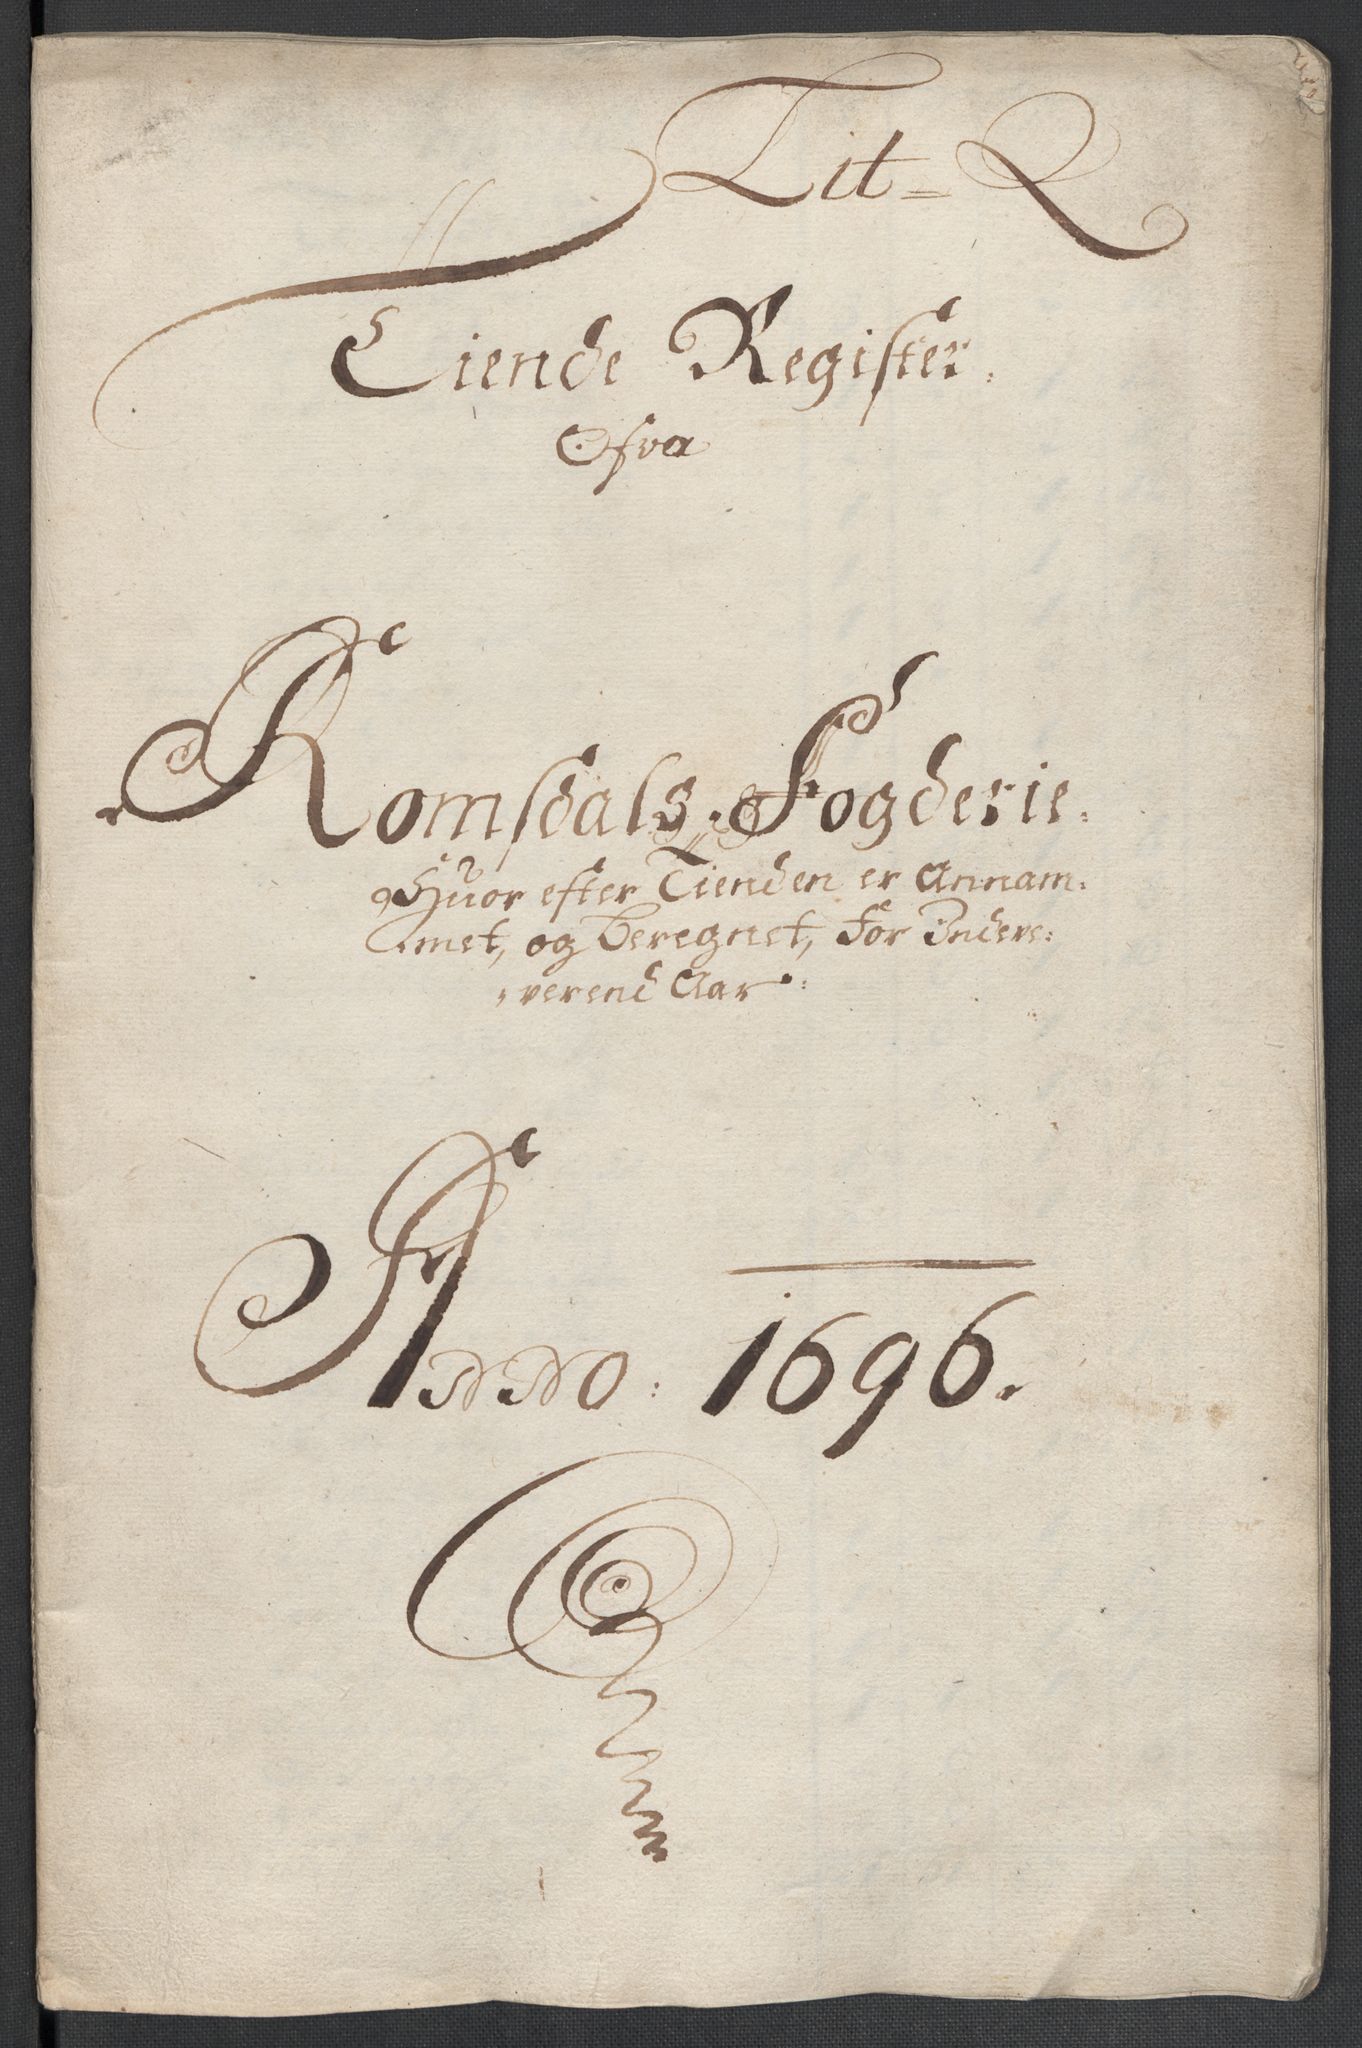 Lit= Q
Tiende Register.
Ofver
Romsdals Fogderie.
Huor efter Tienden er Annam:
met, og beregnet, for Indere:
verend Aar:
Anno: 1696.